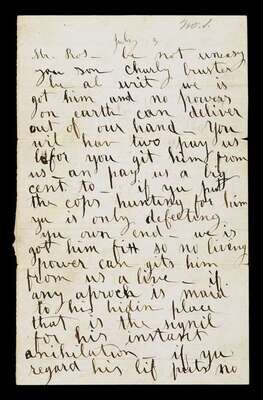 No. 1.
July 3
Mr. Ros- be not uneasy
you son charly bruster
he al writ we is
got him and no powers
on earth can deliver
out of our hand - You
wil hav two pay us
befor you git him from
us - an pay us a big
cent to - if yu put
the cops hunting for him
yu is only defeeting
yu own end - we is
got him fitt so no living
power can gits him
from us a live - if
any aproch is maid
to his hidin place
that is the signil
for his instant
anihilation - if yu
regard his lif puts no